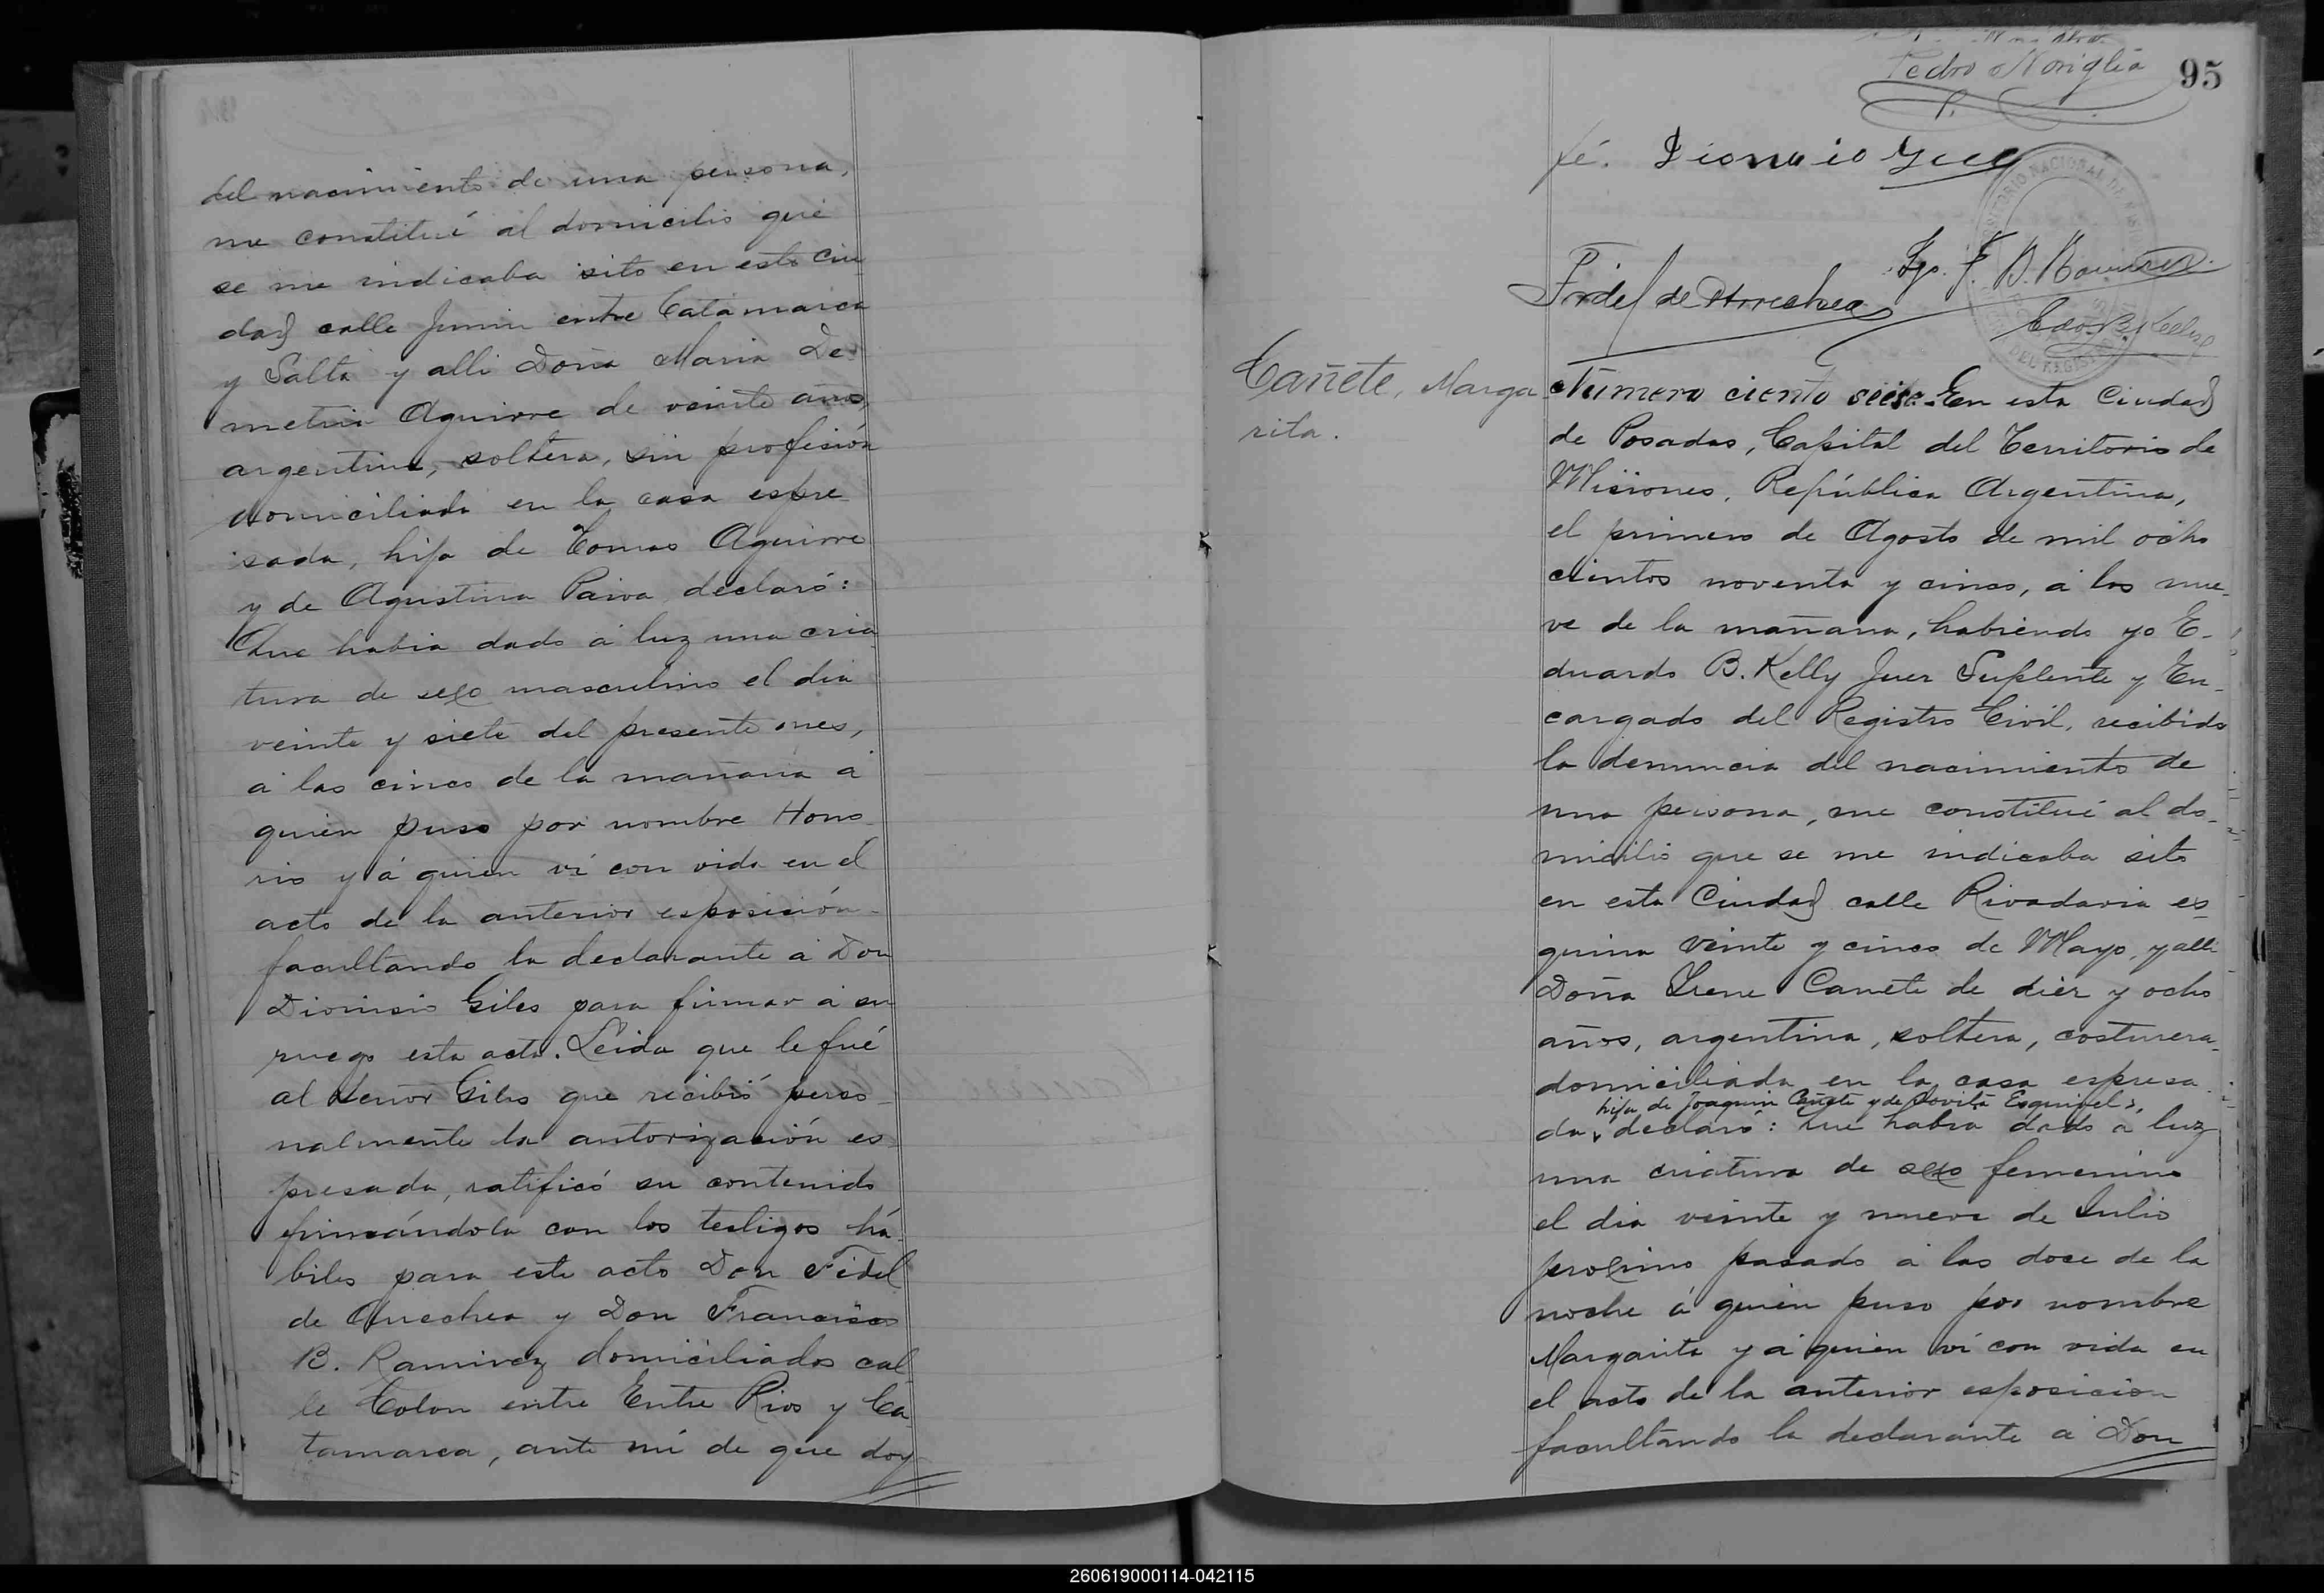 del nacimiento de una persona,
me constituí al domicilio que
se me indicaba sito en esta ciu
dad calle Junin entre Catamarca
y Salta y alli Doña Maria De-
metria Aguirre de veinte años,
argentina, soltera, sin profesión
domiciliada en la casa espre
sada, hija de Tomas Aguirre
y de Agustina Paiva declaró:
Que habia dado á luz una cria
tura de sexo masculino el dia
veinte y siete del presente mes,
á las cinco de la mañana á
quien puso por nombre Hono
rio y á quien ví con vida en el
acto de la anterior esposición-
facultando la declarante á Don
Dionisio Giles para firmar á su
ruego esta acta. Leida que le fué
al Señor Giles que recibió perso-
nalmente la autorización es-
presada, ratificó su contenido
firmándola con los testigos há-
biles para este acto Don Fidel
de Arrechea y Don Francisco
B. Ramirez domiciliados cal
le Colon entre Entre Rios y Ca
tamarca, ante mí de que doy
Pedro Noriglia
95
fé. Dionicio
Fidel de Arrechea
Tgo. F. B. Ramirez
Edo. B. Kelly
Cañete, Marga
rita.
Número ciento seis. En esta Ciudad
de Posadas, Capital del Territorio de
Misiones, República Argentina,
el primero de Agosto de mil ocho
cientos noventa y cinco, á las nue-
ve de la mañana, habiendo yo E-
duardo B. Kelly Juez Suplente y En-
cargado del Registro Civil, recibido
la denuncia del nacimiento de
una persona, me constituí al do-
micilio que se me indicaba sito
en esta Ciudad calle Rivadavia es-
quina veinte y cinco de Mayo, y alli
Doña Irene Cañete de diez y ocho
años, argentina, soltera, costurera-
domiciliada en la casa espresa
hija de Joaquin Cañete y de Jovita Esquivel,
da, declaró: Que habia dado á luz
una criatura de sexo femenino
el dia veinte y nueve de Julio
proximo pasado á las doce de la
noche á quien puso por nombre
Margarita y á quien ví con vida en
el acto de la anterior esposicion
facultando la declarante á Don
260619000114-042115